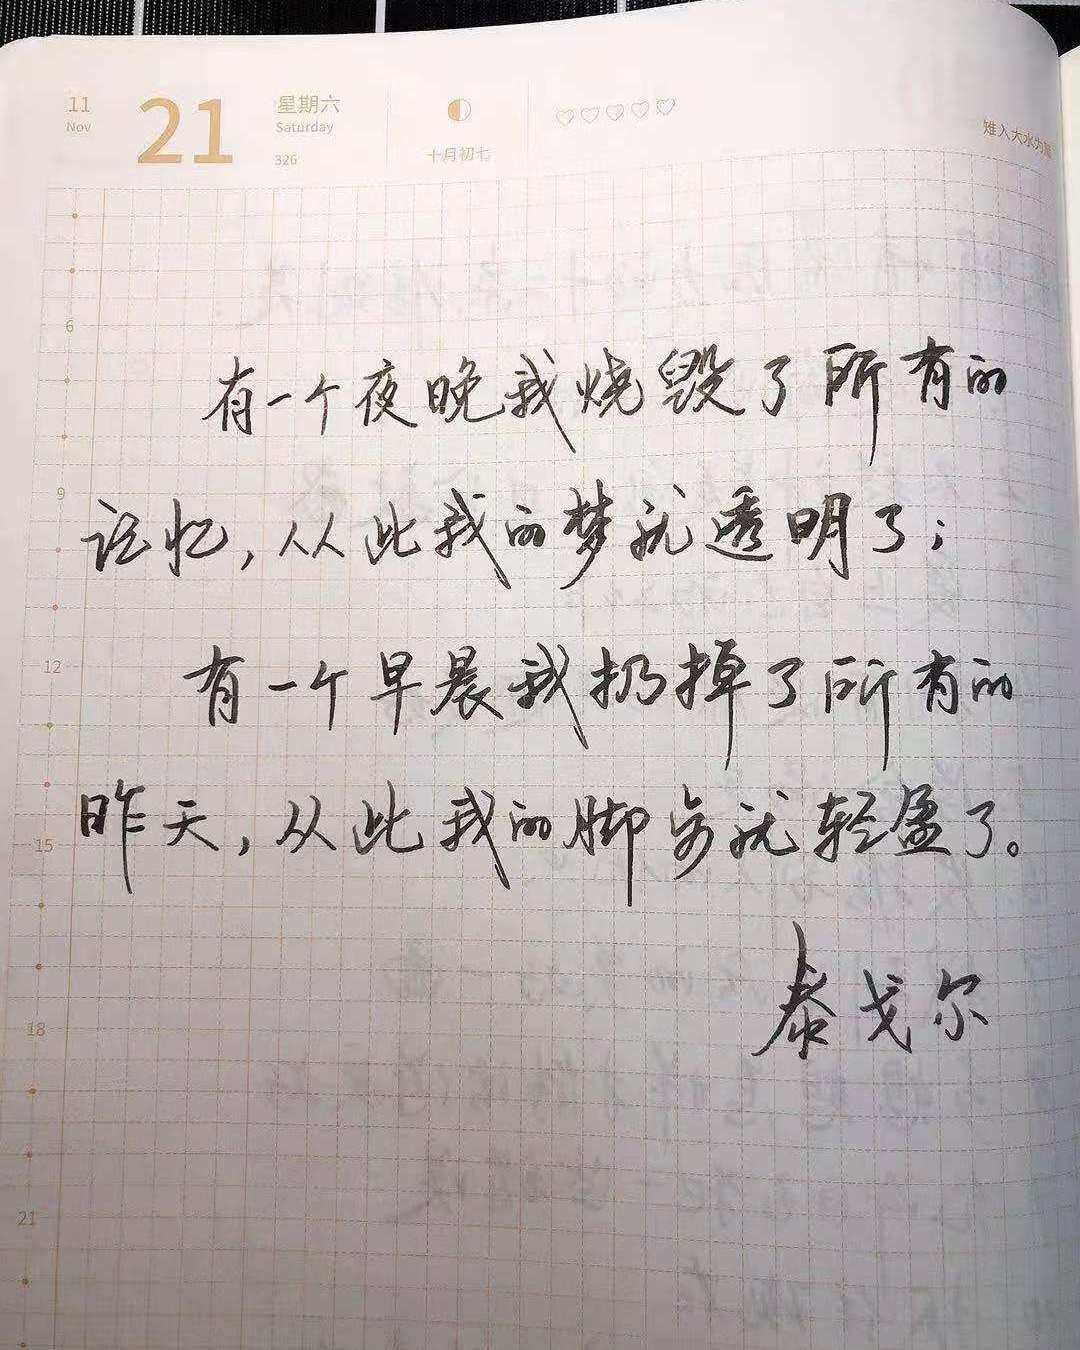 11
Nov
21
星期六
Saturday
326
十月初七
雉入大水为蜃
6
有一个夜晚我烧毁了所有的
9
记忆,从此我的梦就透明了;
12
有一个早晨我扔掉了所有的
昨天,从此我的脚步就轻盈了。
15
泰戈尔
18
21